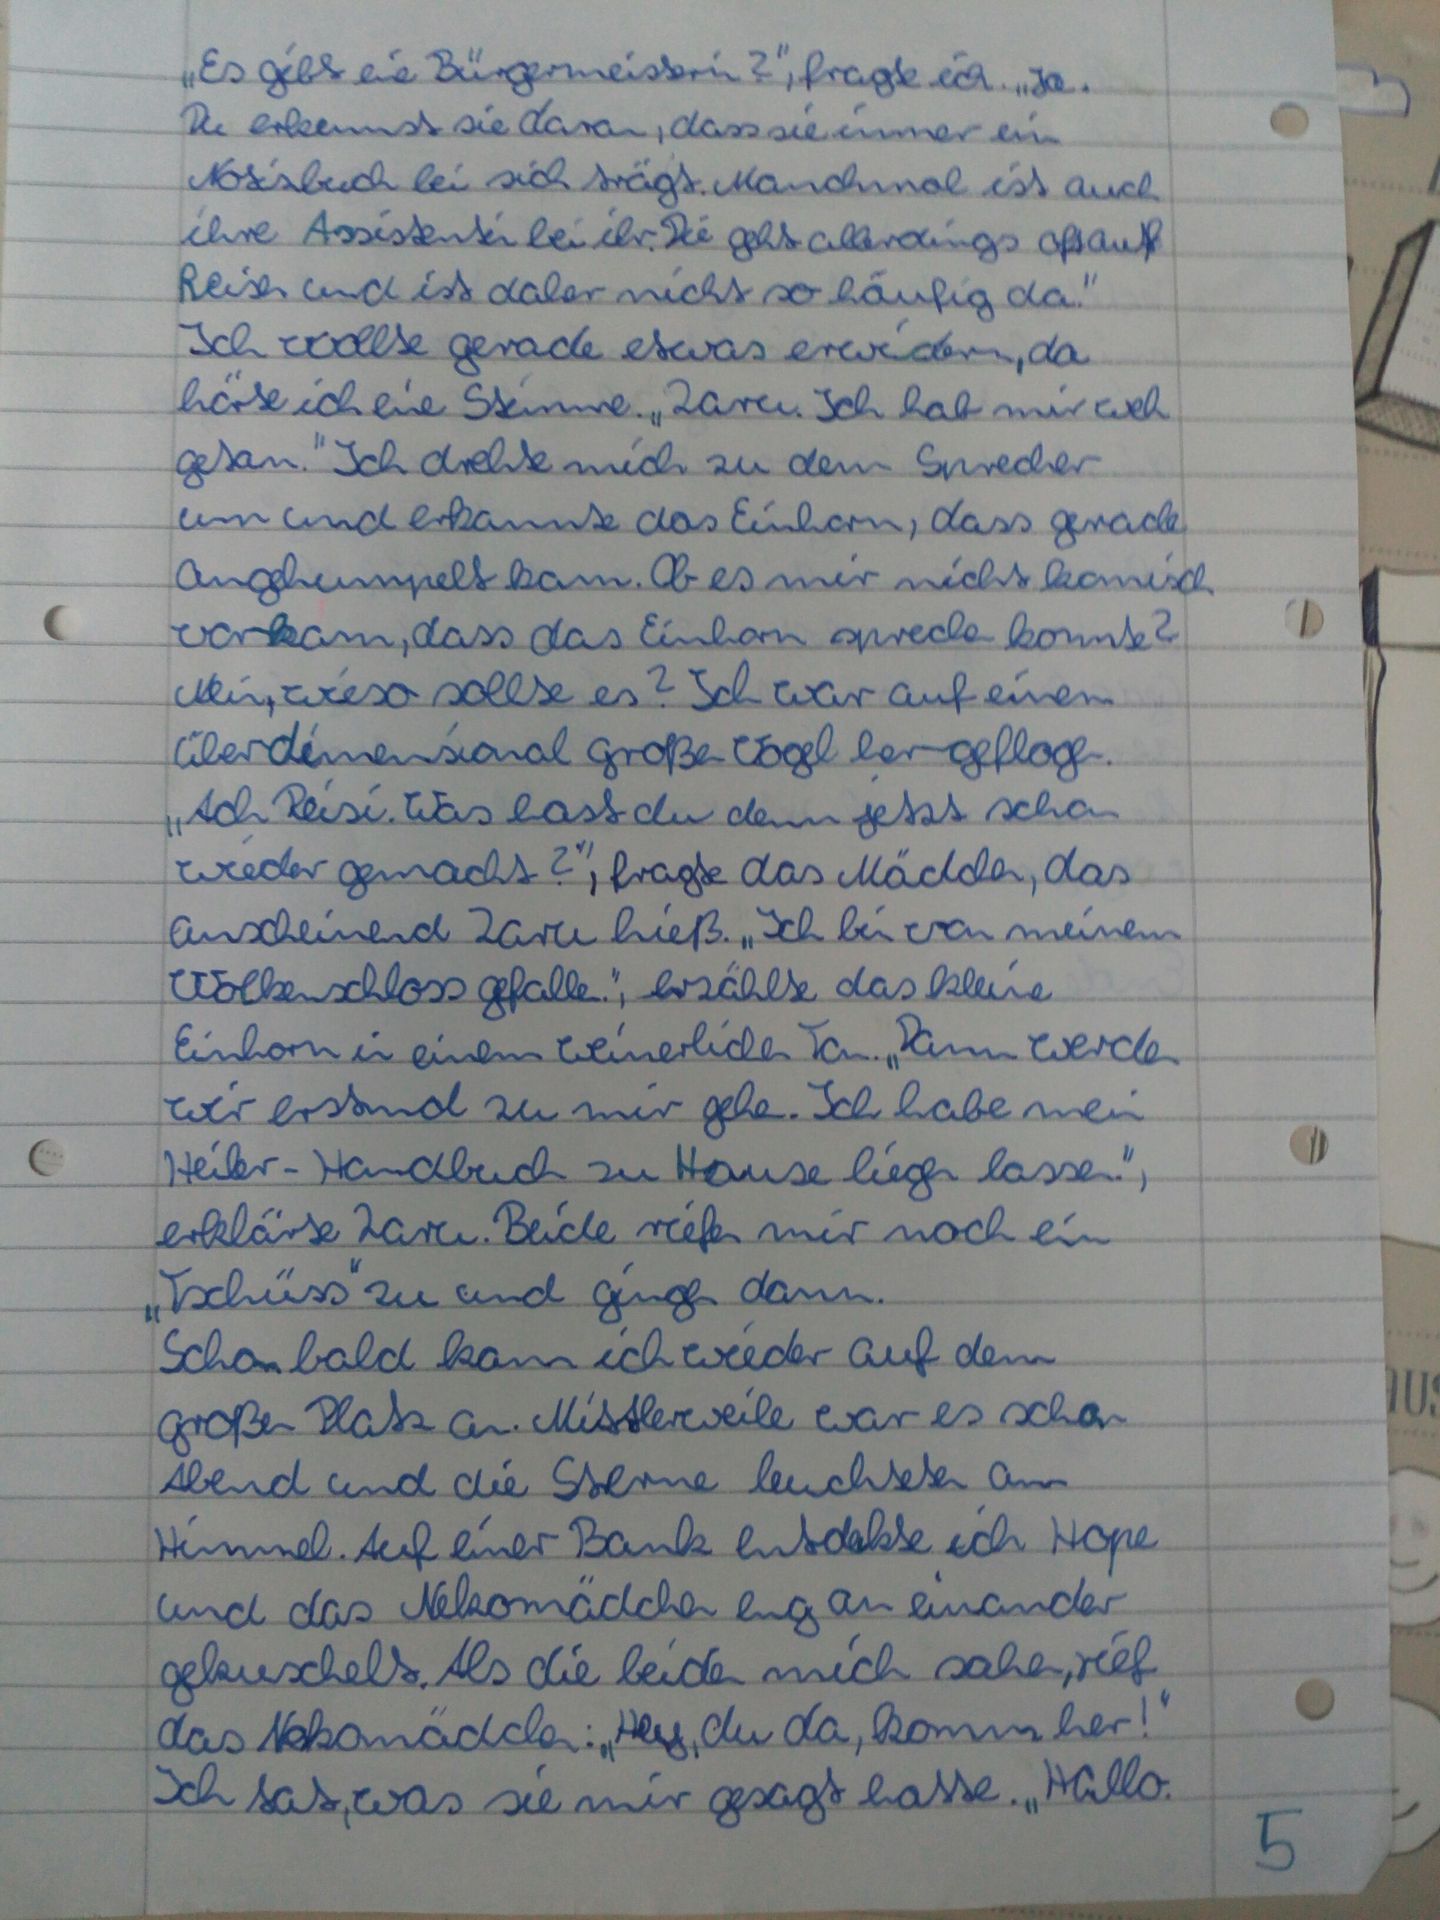 „Es gibt eine Bürgermeisterin?", fragte ich. „Ja.
Du erkennst sie daran, dass sie immer ein
Notizbuch bei sich trägt. Manchmal ist auch
ihre Assistentin bei ihr. Die geht allerdings oft auf
Reisen und ist daher nicht so häufig da."
Ich wollte gerade etwas erwidern, da
hörte ich eine Stimme. „Zaru. Ich hab mir weh
getan." Ich drehte mich zu dem Sprecher
um und erkannte das Einhorn, dass gerade
angehumpelt kam. Ob es mir nicht komisch
vorkam, dass das Einhorn sprechen konnte?
Nein, wieso sollte es? Ich war auf einem
überdimensional großen Vogel her geflogen.
„Ach Reisi. Was hast du denn jetzt schon
wieder gemacht?", fragte das Mädchen, das
anscheinend Zaru hieß. „Ich bin von meinem
Wolkenschloss gefallen.", erzählte das kleine
Einhorn in einem weinerlichen Ton. „Dann werden
wir erstmal zu mir gehen. Ich habe mein
Heiler-Handbuch zu Hause liegen lassen.",
erklärte Zaru. Beide riefen mir noch ein
„Tschüss" zu und gingen dann.
Schon bald kam ich wieder auf dem
großen Platz an. Mittlerweile war es schon
Abend und die Sterne leuchteten am
Himmel. Auf einer Bank entdekte ich Hope
und das Nekomädchen eng an einander
gekuschelt. Als die beiden mich sahen, rief
das Nekomädchen: „Hey, du da, komm her!"
Ich tat, was sie mir gesagt hatte. „Hallo.
5